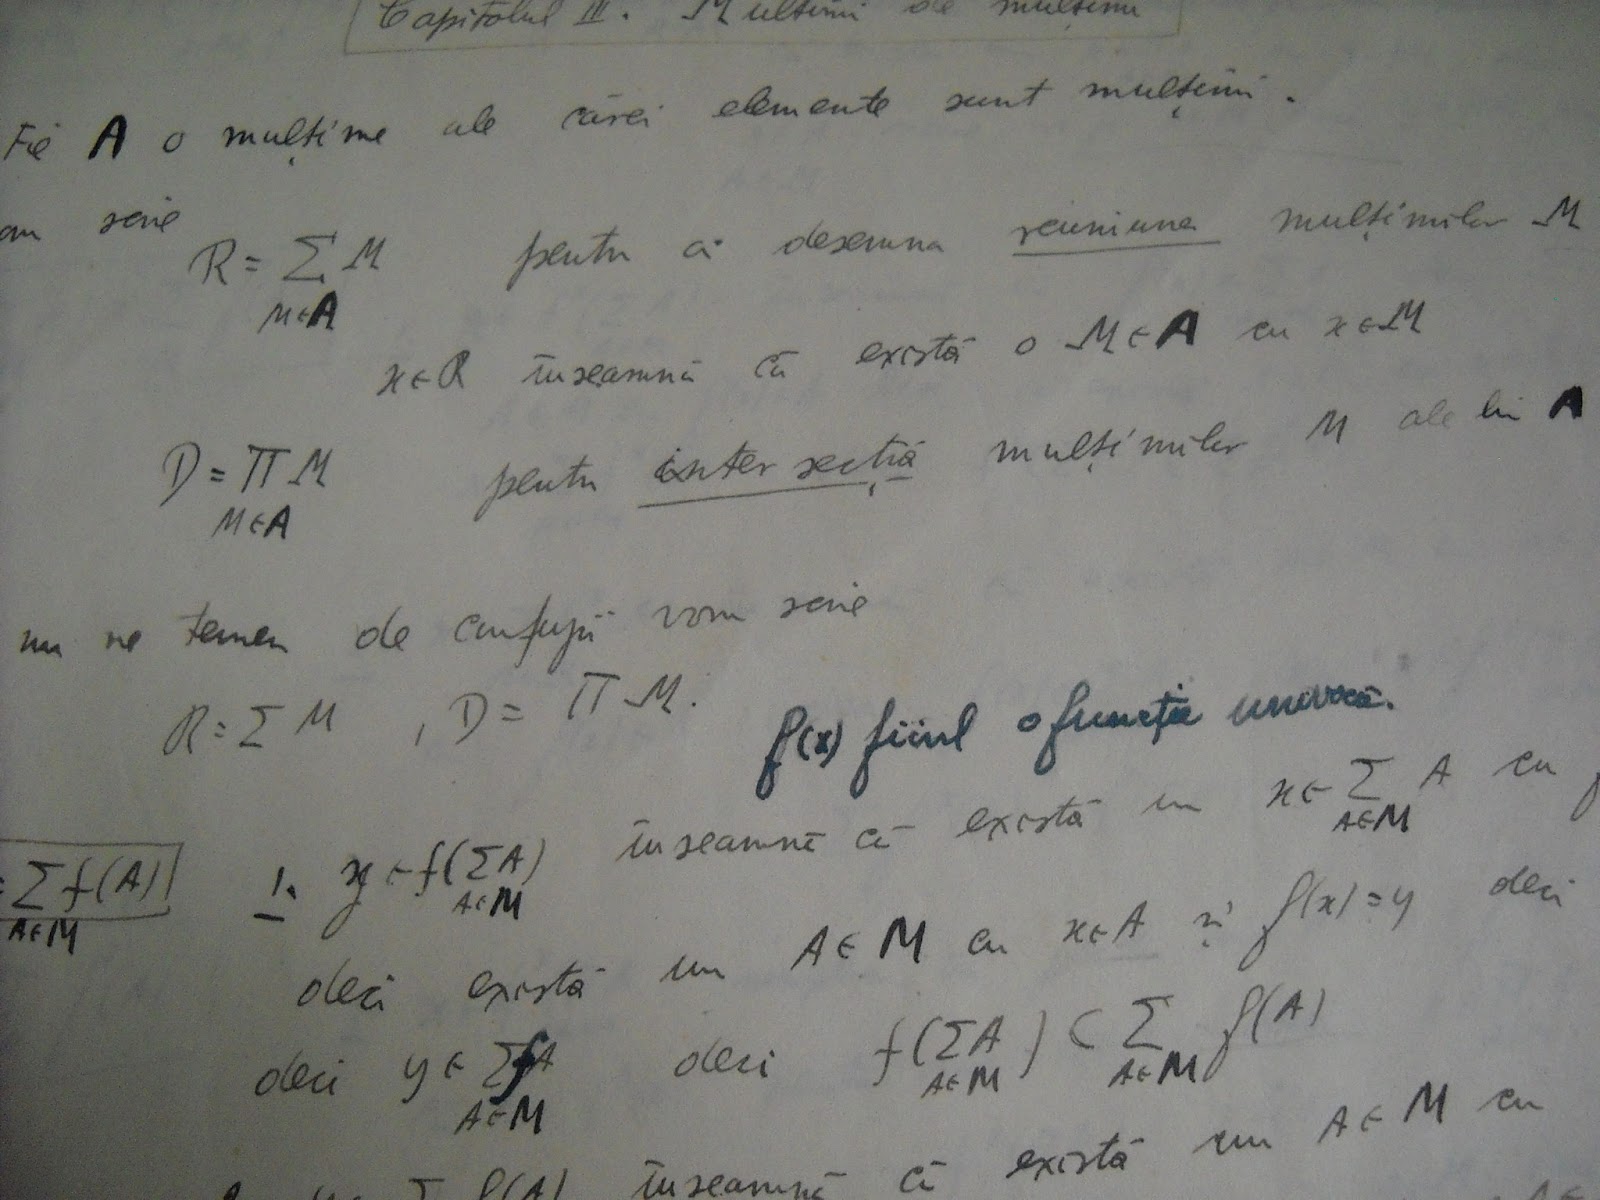 Capitolul III. Mulțimi de mulțimi
Fie A o mulțime ale cărei elemente sunt mulțimi.
om scrie
R = Σ M pentru a desemna reuniunea mulțimilor M
M∈A
x∈R înseamnă că există o M∈A cu x∈M
D = Π M pentru intersecția mulțimilor M ale lui A
M∈A
nu ne temem de confuzii vom scrie
R = Σ M , D = Π M.
f(x) fiind o funcție univocă.
= Σ f(A) 1. y∈f(Σ A) înseamnă că există un x∈ Σ A cu f
A∈M A∈M A∈M
deci există un A∈M cu x∈A și f(x)=y deci
deci y∈ Σ fA deci f(Σ A) ⊂ Σ f(A)
A∈M A∈M A∈M
y Σ f(A) înseamnă că există un A∈M cu